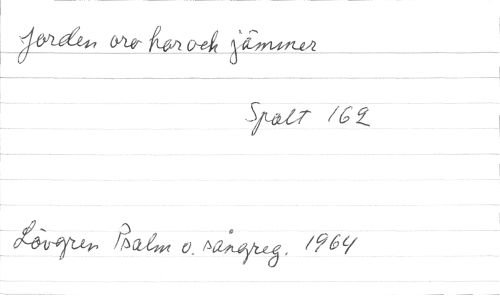 Jorden oro har och jämmer
Spalt 162
Lövgren Psalm o. sångreg. 1964